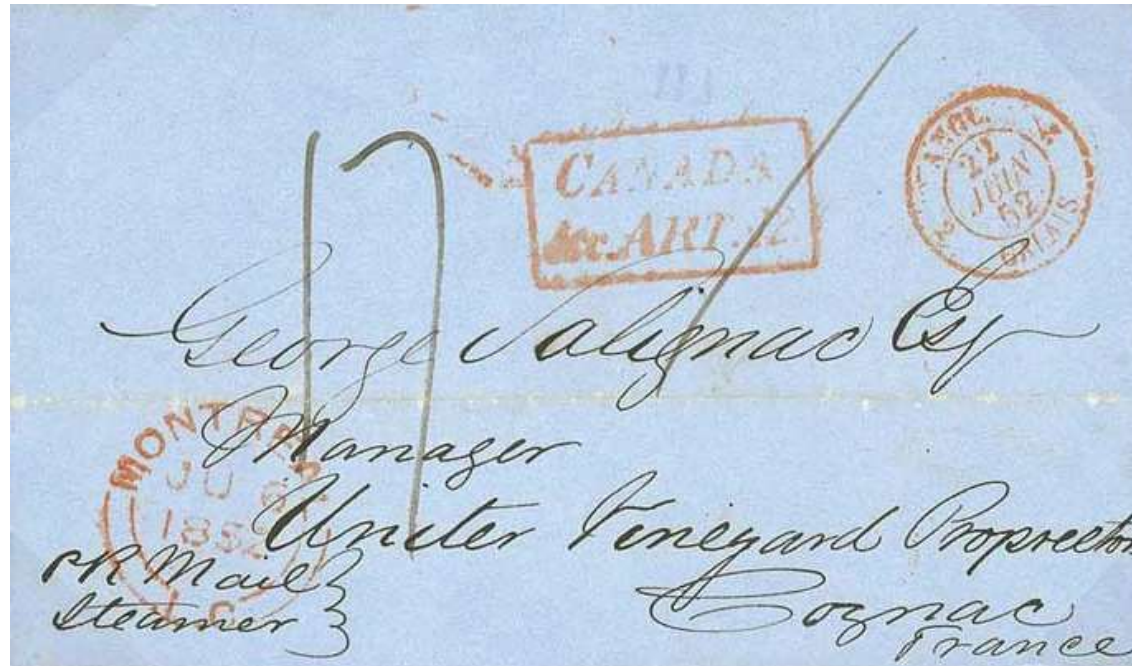 17
CANADA
&c. ART. 12
2 ANGL. 2
22
JUIN
52
CALAIS
George Salignac Esq
Manager
United Vineyard Proprietors
Cognac
France
MONTREAL
JU 6
1852
L.C
pr Mail
Steamer